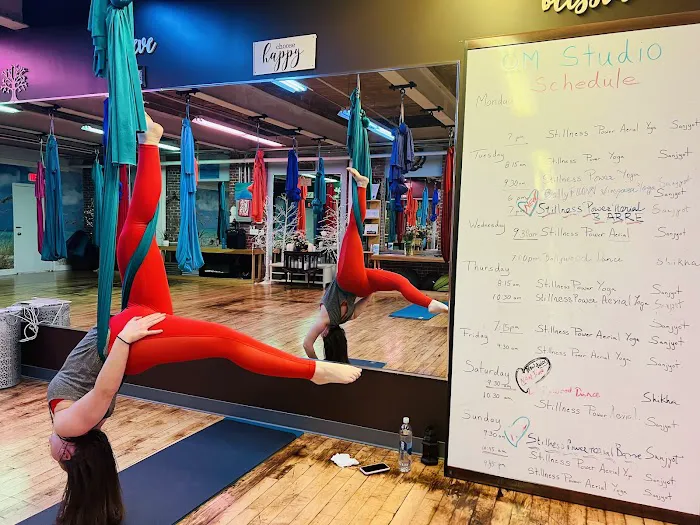 choose
happy
M Studio
Schedule
Monday
7 pm Stillness Power Aerial Yoga Sanjyot
Tuesday
8 15 am Stillness Power Yoga Sanjyot
9.30 am Stillness Power Yoga Sanjyot
Vinyasa Yoga Sanjyot
7 pm Stillness Power Aerial Sanjyot
& BARRE
Wednesday 9 30 am Stillness Power Aerial Sanjyot
7:00pm Bollywood Dance Shikha
Thursday
8 15 am Stillness Power Yoga Sanjyot
10 30 am Stillness Power Aerial Yoga Sanjyot
Friday 7 15 pm Stillness Power Aerial Yoga Sanjyot
9 30 am Stillness Power Aerial Yoga Sanjyot
Saturday
9 30 am Dance Shikha
10 30 am Stillness Power Aerial Sanjyot
Sunday
9 30 am Stillness Power Aerial Barre Sanjyot
Stillness Power Aerial Yoga Sanjyot
Stillness Power Aerial Yoga Sanjyot